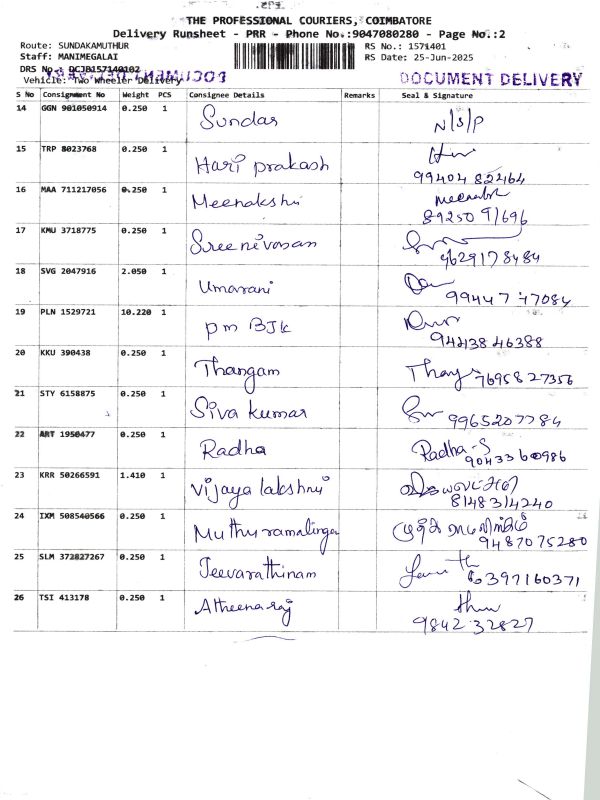 THE PROFESSIONAL COURIERS, COIMBATORE
Delivery Runsheet - PRR - Phone No.:9047080280 - Page No.:2
Route: SUNDAKAMUTHUR RS No.: 1571401
Staff: MANIMEGALAI RS Date: 25-Jun-2025
DRS No.: DCJB157140102
Vehicle: Two Wheeler Delivery DOCUMENT DELIVERY
S No Consignment No Weight PCS Consignee Details Remarks Seal & Signature
14 GGN 901050914 0.250 1 Sundar N/S/P
15 TRP 8023768 0.250 1 Hari prakash
99404 82464
16 MAA 711217056 0.250 1 Meenakshi
89250 91696
17 KMU 3718775 0.250 1 Sreenivasan
9629178484
18 SVG 2047916 2.050 1 Umarani
99447 47084
19 PLN 1529721 10.220 1 pm BJK
94438 46388
20 KKU 390438 0.250 1 Thangam
76958 27356
21 STY 6158875 0.250 1 Siva kumar
9965207784
22 ART 1950477 0.250 1 Radha Radha-S
9043360986
23 KRR 50266591 1.410 1 Vijaya lakshmi
8148314240
24 IXM 508540566 0.250 1 Muthuramalinga
9487075280
25 SLM 372827267 0.250 1 Jeevarathinam
6397160371
26 TSI 413178 0.250 1 Atheenaraj
9842 32827